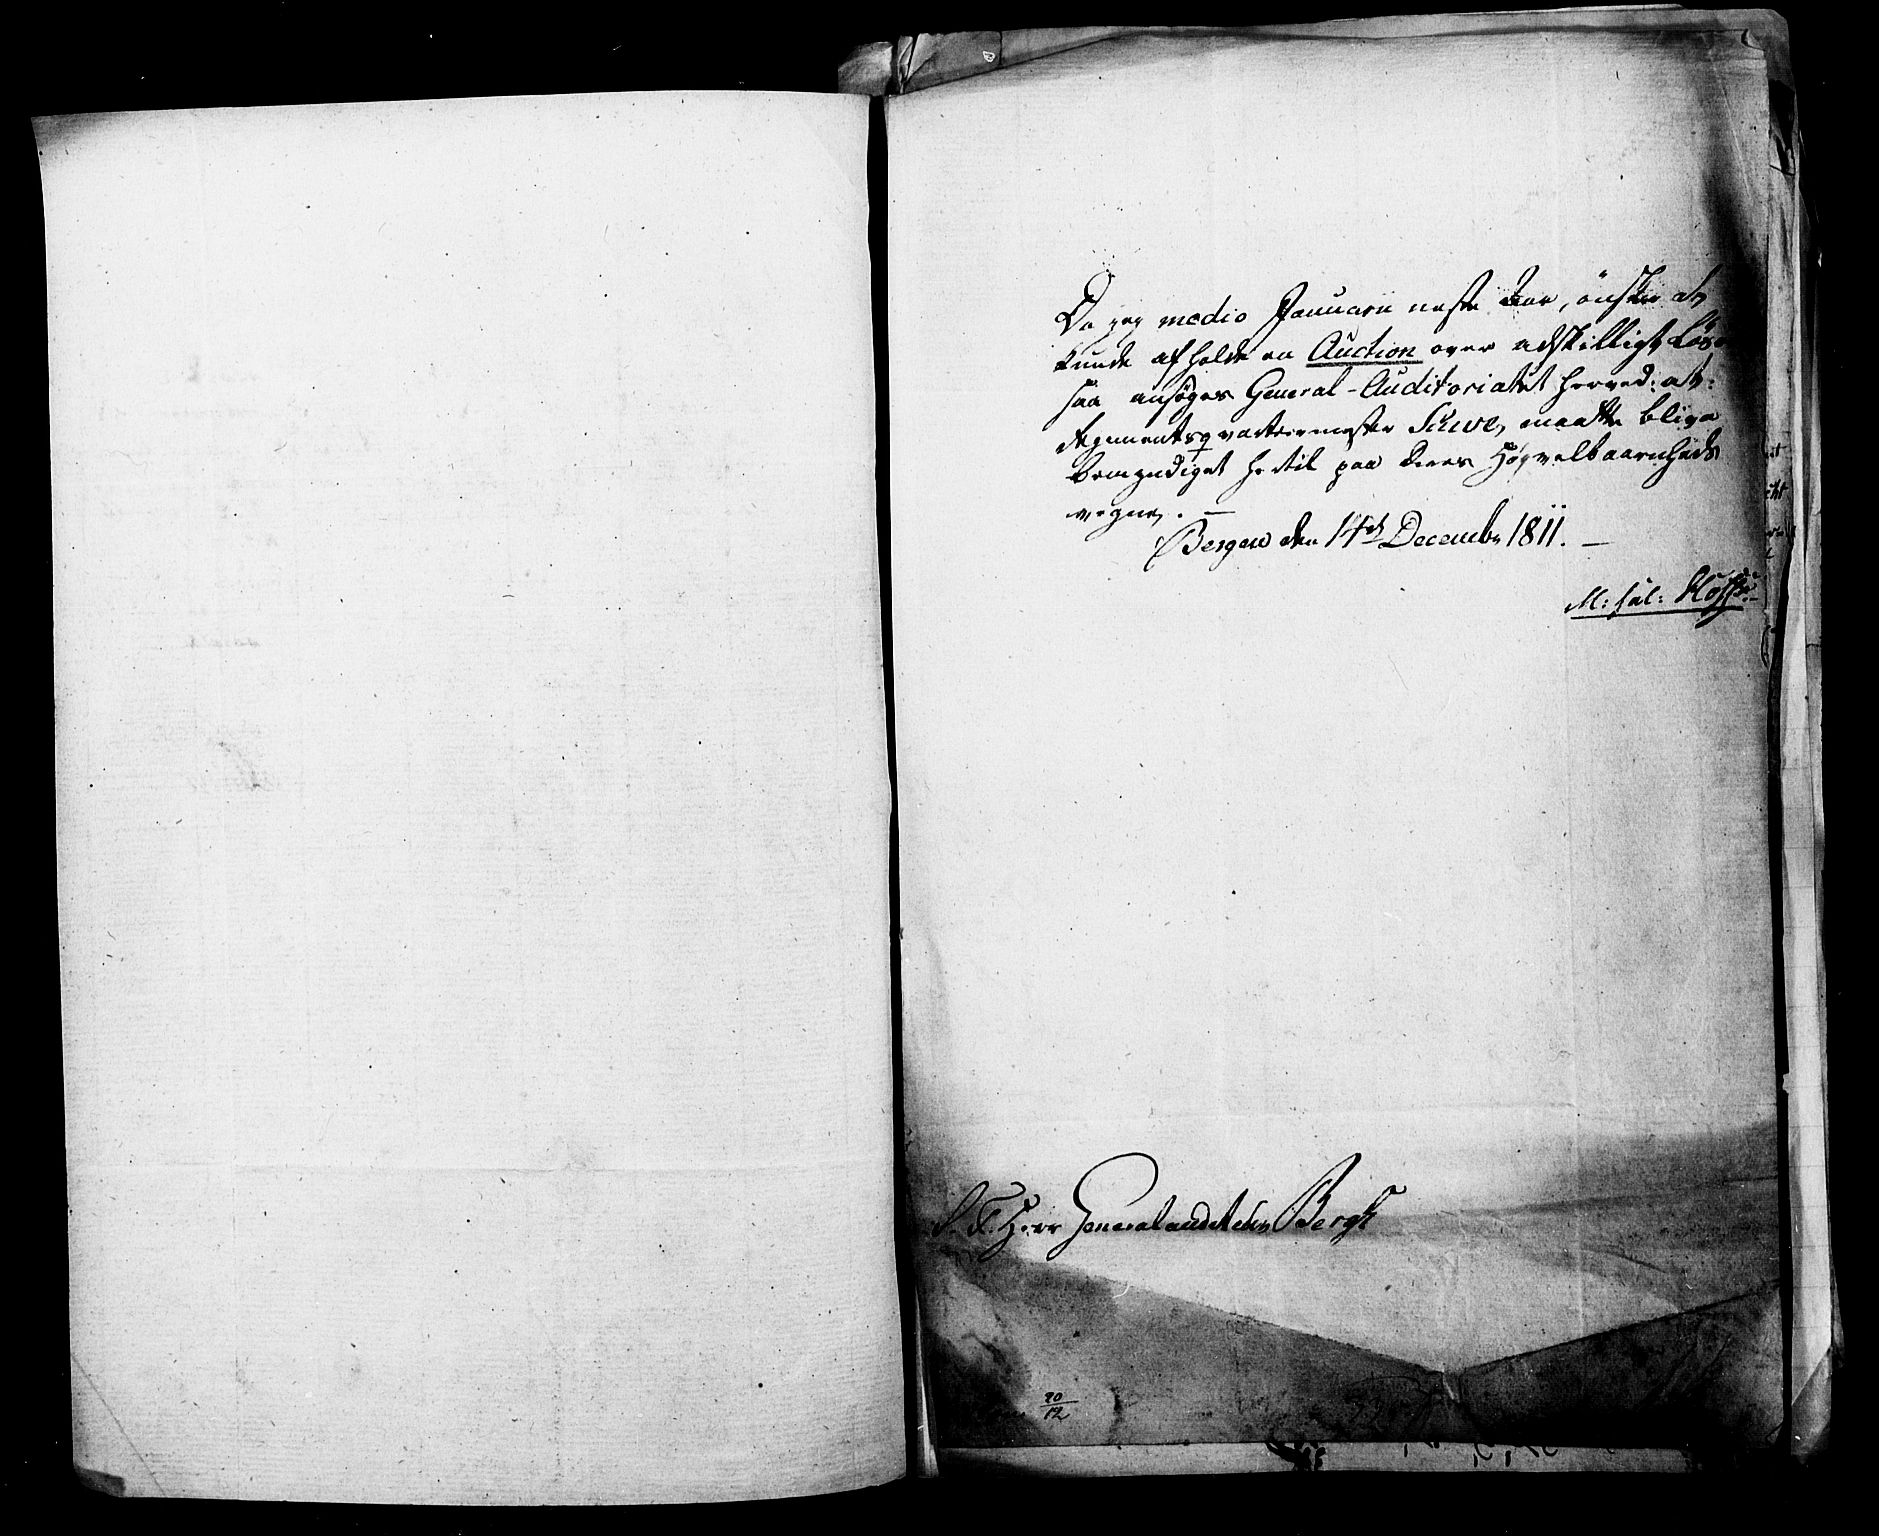 Da jeg medio Januarii neste Aar, önsker at
kunde afholde en Auction over adskilligt Løs
saa ansøges General-Auditoriatet herved: at:
Regimentsqvarteermester Siuve, maatte blive
bemyndiget hertil paa Deres Høyvelbaarnheds
vegne. —
Bergen den 14de Decembr 1811. —
M: sal:
S. T. Herr Generalauditeur Bergh
20/12